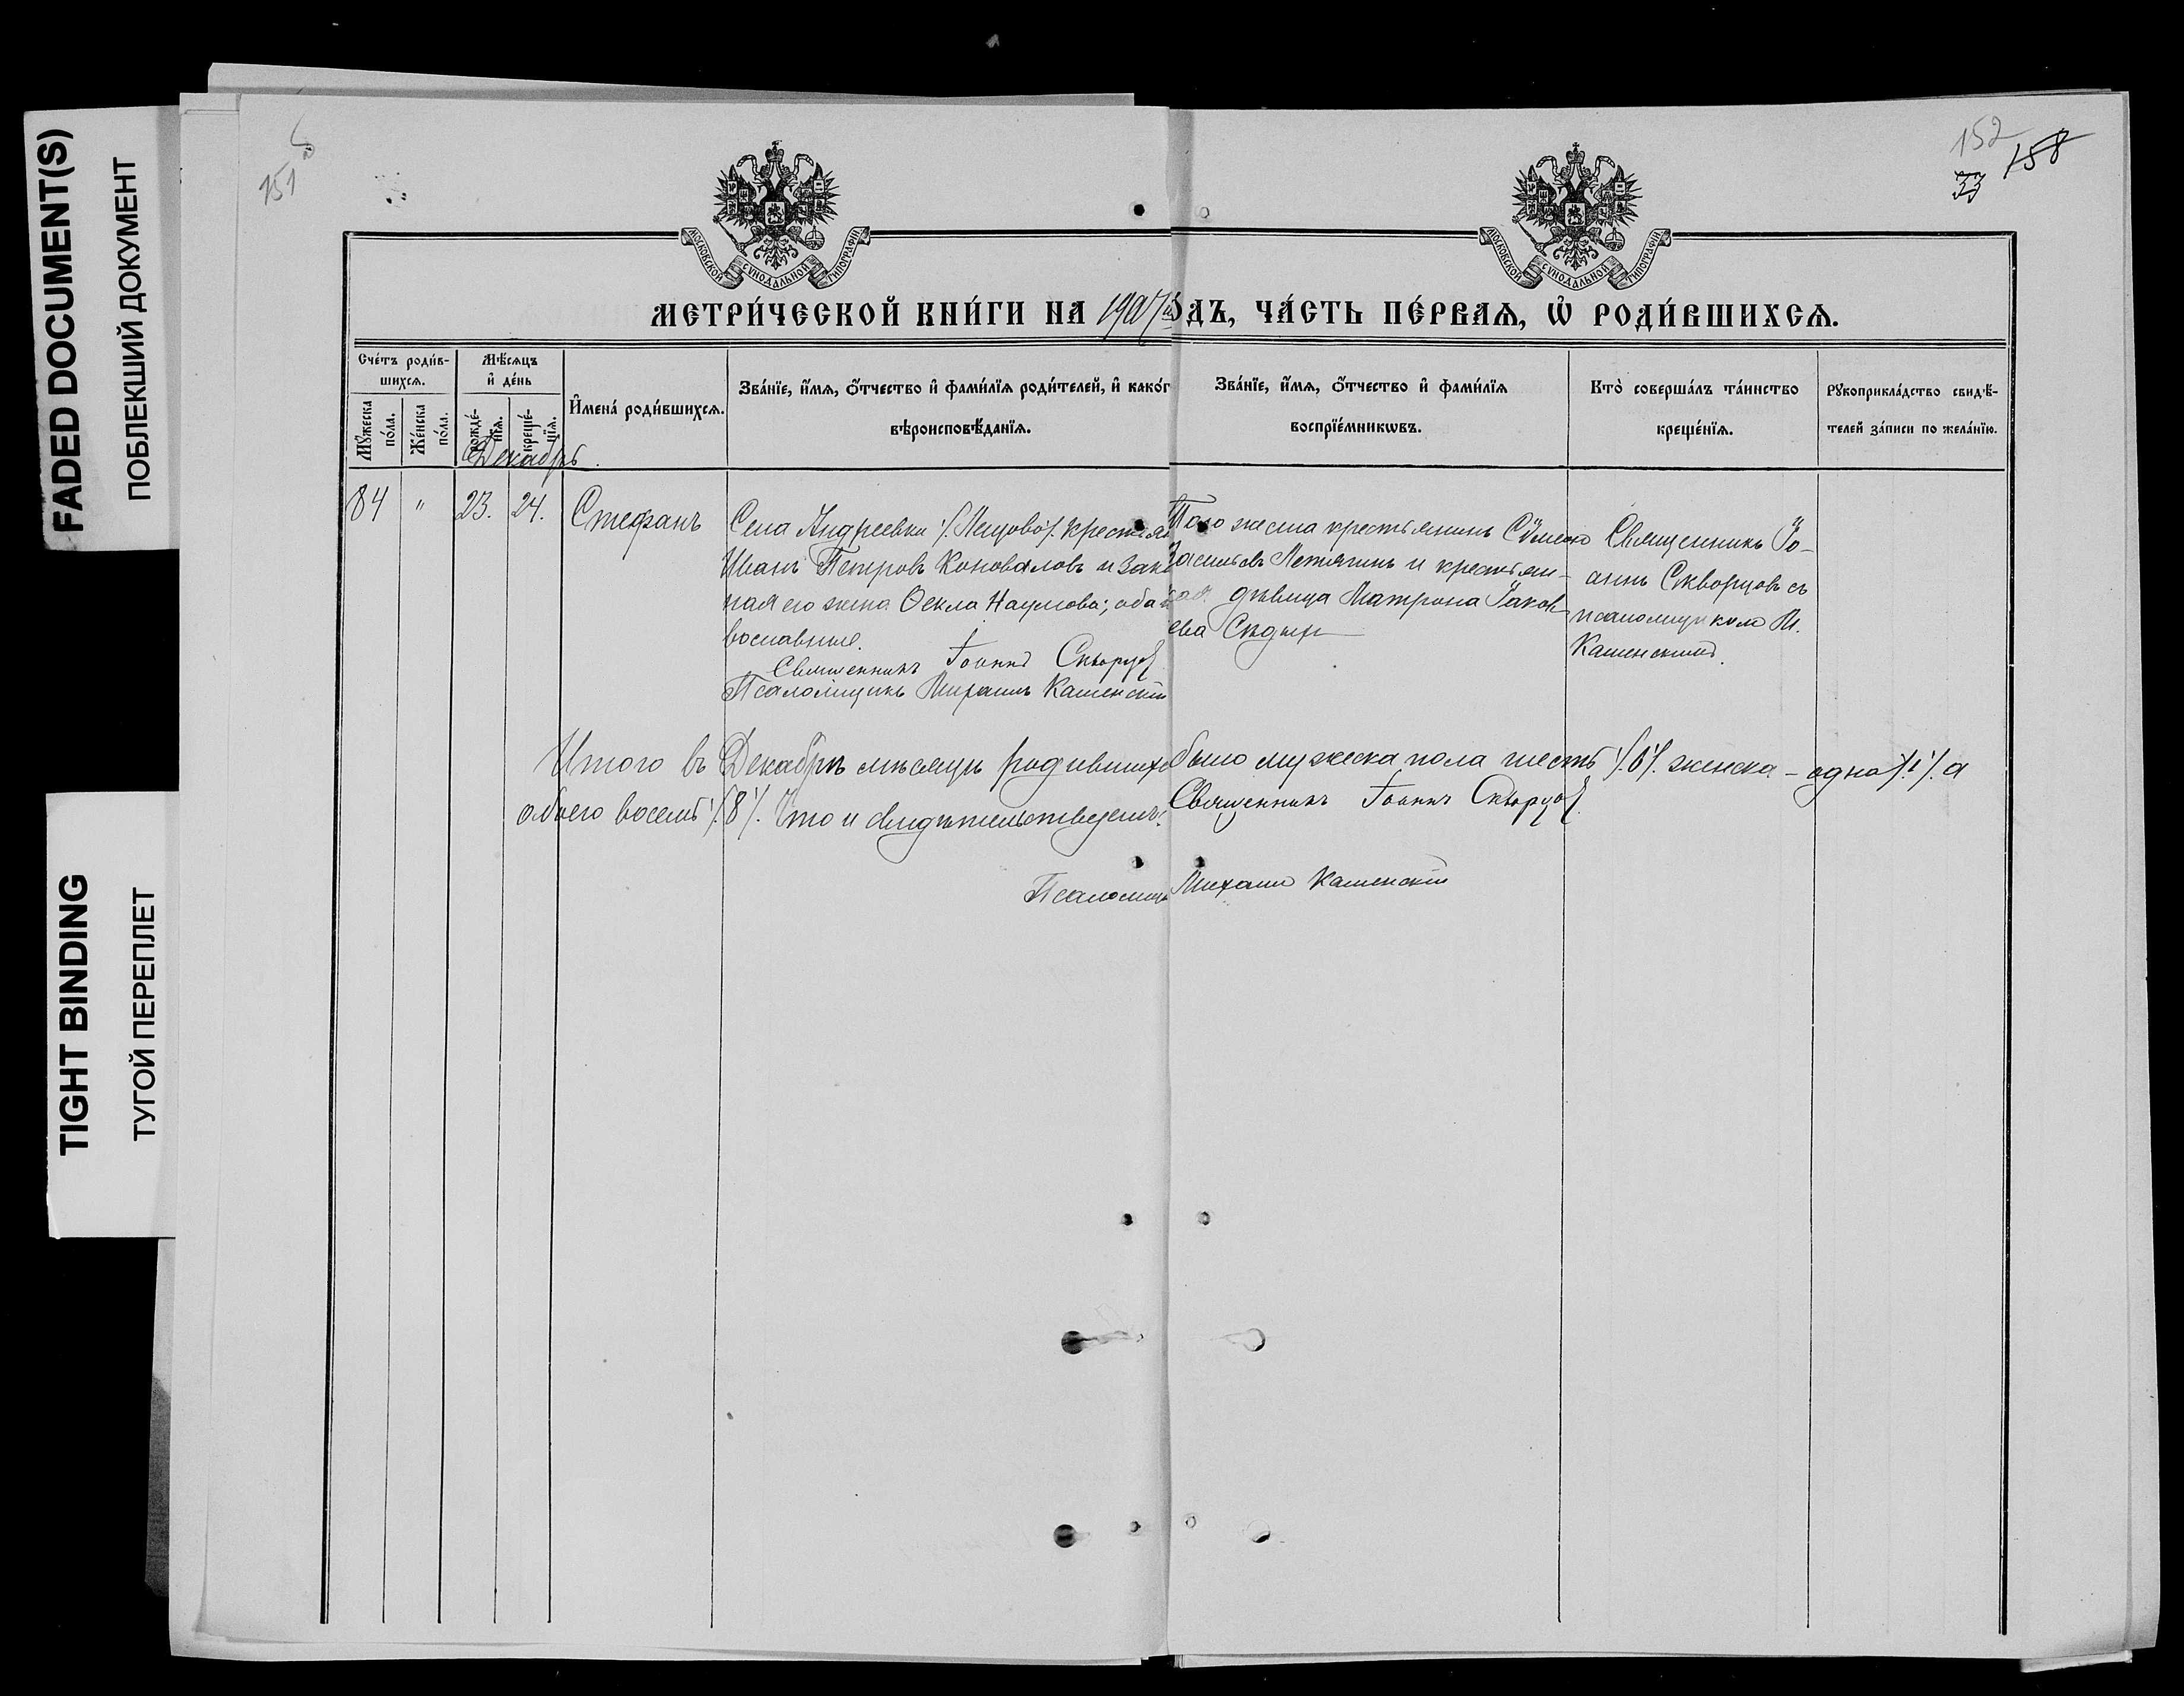 FADED DOCUMENT(S)
ПОБЛЕКШИЙ ДОКУМЕНТ
TIGHT BINDING
ТУГОЙ ПЕРЕПЛЕТ
151
152
158
33
МОСКОВСКОЙ СѴНОДАЛЬНОЙ ТИПОГРАФІИ
МОСКОВСКОЙ СѴНОДАЛЬНОЙ ТИПОГРАФІИ
МЕТРИ́ЧЕСКОЙ КНИ́ГИ НА 1907 ОДЪ, ЧА́СТЬ ПЕ́РВАЯ, Ѡ҆ РОДИ́ВШИХСѦ.
Сче́тъ роди́в-
шихсѧ.
Мꙋ́жеска по́ла.
Же́нска по́ла.
Мѣ́сѧцъ
и҆ де́нь
рожде́-
нїѧ.
креще́-
нїѧ.
И҆мена̀ роди́вшихсѧ.
Зва́нїе, и҆́мѧ, ѻ҆́тчество и҆ фами́лїѧ роди́телей, и҆ како́г
вѣроисповѣ́данїѧ.
Зва́нїе, и҆́мѧ, ѻ҆́тчество и҆ фами́лїѧ
воспрїе́мникѡвъ.
Кто̀ соверша́лъ та́инство
креще́нїѧ.
Рꙋкоприкла́дство свидѣ́-
телей за́писи по жела́нїю.
Декабрь.
84 " 23. 24. Стефанъ
Села Андреевки крестьян
Иванъ Петровъ Коноваловъ и зако
ная его жена Ѳекла Наумова; оба п
вославные.
Священникъ Іоаннъ Скворцовъ
Псаломщикъ Михаилъ Каменскій
Того же села крестьянинъ
Васильевъ и крестьян-
ская дѣвица Матрона Іаковл
ева
Священникъ Іо-
аннъ Скворцовъ съ
псаломщикомъ М.
Каменскимъ.
Итого въ Декабрѣ мѣсяцѣ родившихс было мужеска пола шесть /.6/. женска - одно /.1/. а
обоего восемь /.8/. Что и свидѣтельствуемъ: Священникъ Іоаннъ Скворцовъ
Псаломщ Михаилъ Каменскій